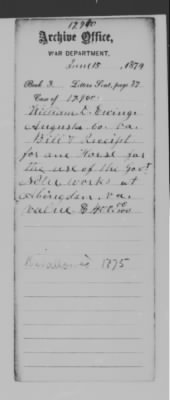 12900
Archive Office,
WAR DEPARTMENT,
June 15, 1879
Book 3 Letters Sent, page 37
Case of 12900.
William D. Ewing,
Augusta co. Va.
Bill & Receipt
for one Horse for
the use of the Govt
works at
Abingdon, Va.
Value $
1875